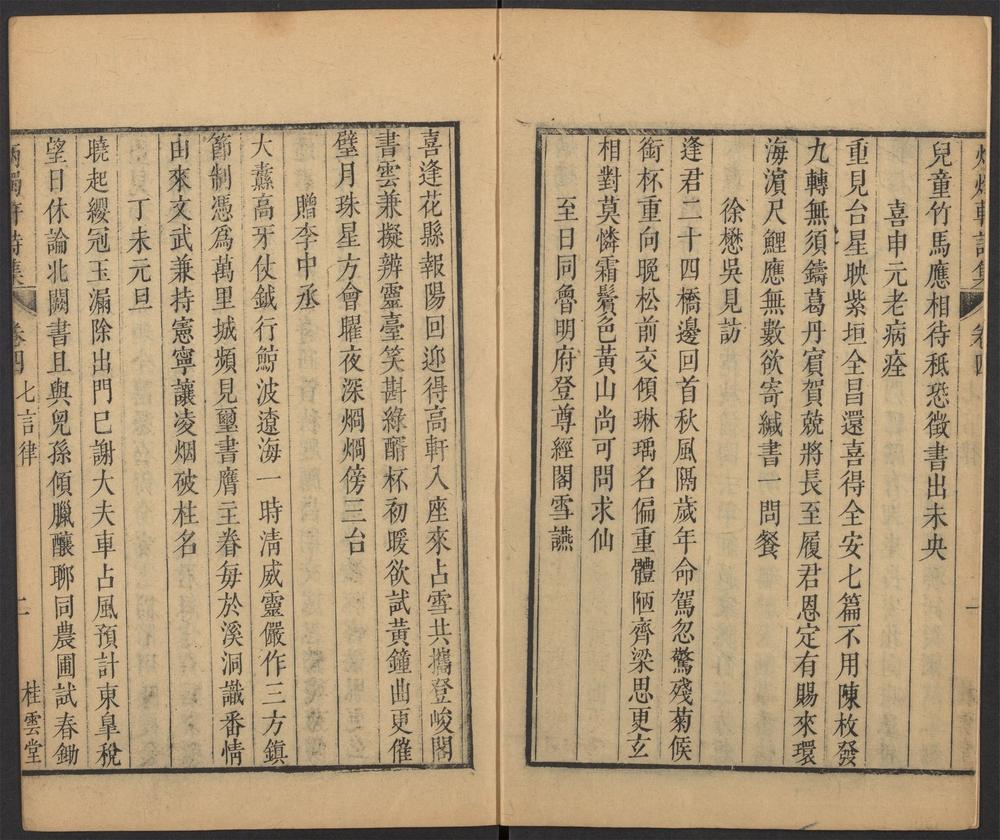 兒童竹馬應相待秪恐徵書出未央
喜申元老病痊
重見台星映紫垣全昌還喜得全安七篇不用陳枚發
九轉無須鑄葛丹賓賀兢將長至履君恩定有賜來環
海濵尺鯉應無數欲寄緘書一問餐
徐懋吳見訪
逢君二十四橋邊回首秋風隔歲年命駕忽驚殘菊候
銜杯重向晚松前交傾琳瑀名偏重體陋齊梁思更玄
相對莫憐霜鬢色黃山尚可問求仙
至日同魯明府登尊經閣雪讌
喜逢花縣報陽回迎得高軒入座來占雪共攜登峻閣
書雲兼擬辨靈臺笑斟綠醑杯初暖欲試黃鐘曲更催
璧月珠星方會曜夜深烱烱傍三台
贈李中丞
大纛高牙仗鉞行鯨波遼海一時清威靈儼作三方鎮
節制憑爲萬里城頻見璽書膺主眷每於溪洞識番情
由來文武兼持憲寧讓凌烟破柱名
丁未元旦
曉起纓冠玉漏除出門巳謝大夫車占風預計東皐稅
望日休論北闕書且與兒孫傾臘釀聊同農圃試春鋤
卷四 七言律 二 桂雲堂